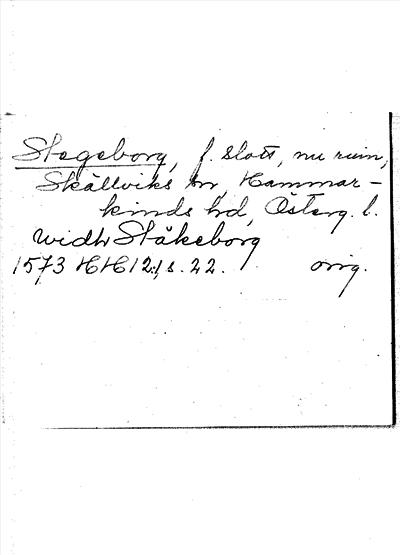 Stegeborg, f. slott, nu ruin,
Skällviks sn, Hammar-
kinds hd, Österg. l.
widh Ståkeborg
1573 HH 12:1, s. 22. orig.